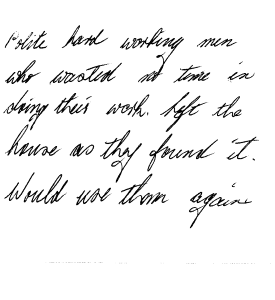 Polite hard working men
who wasted no time in
doing their work. Left the
house as they found it.
Would use them again